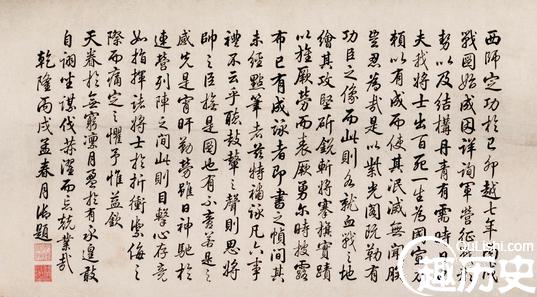 西師定功於己卯越七年丙戌
戰圖始成因詳詢軍營征戰形
勢以及結構丹青有需時日也
夫我將士出百死一生為國宣力
賴以有成而使其泯滅無聞朕
豈忍為哉是以紫光閣既勒有
功臣之像而此則各就血戰之地
繪其攻堅斫銳斬將搴旗實蹟
以旌厥勞而表厥勇爾時披露
布已有成詠者即書之幀間其
未經點筆者茲特補詠凡六事
禮不云乎聽鼓鼙之聲則思將
帥之臣於是圖也有不啻若是之
感先是宵旰勤勞雖日神馳於
連營列陣之間此則目擊心存竟
如指揮諸將士於折衝禦侮之
際而痛定之懼予惟益欽
天眷於無窮凜月盈於有永遑敢
自詡坐謀伐濯而忘兢業哉
乾隆丙戌孟春月御題
QuLiShi.com
趣历史